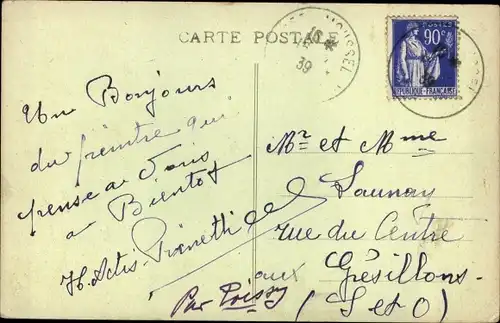 CARTE POSTALE
MOUSSEL
39
POSTES
90c
REPUBLIQUE FRANÇAISE
Un Bonjours
du peintre qui
pense a Vous
a Bientot
Mr et Mme
Launay
rue du Centre
aux Grésillons
Par Poissy
(S et O)